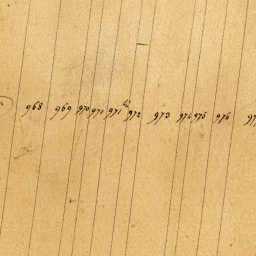 968 969 970 971 971 972 973 974 975 976